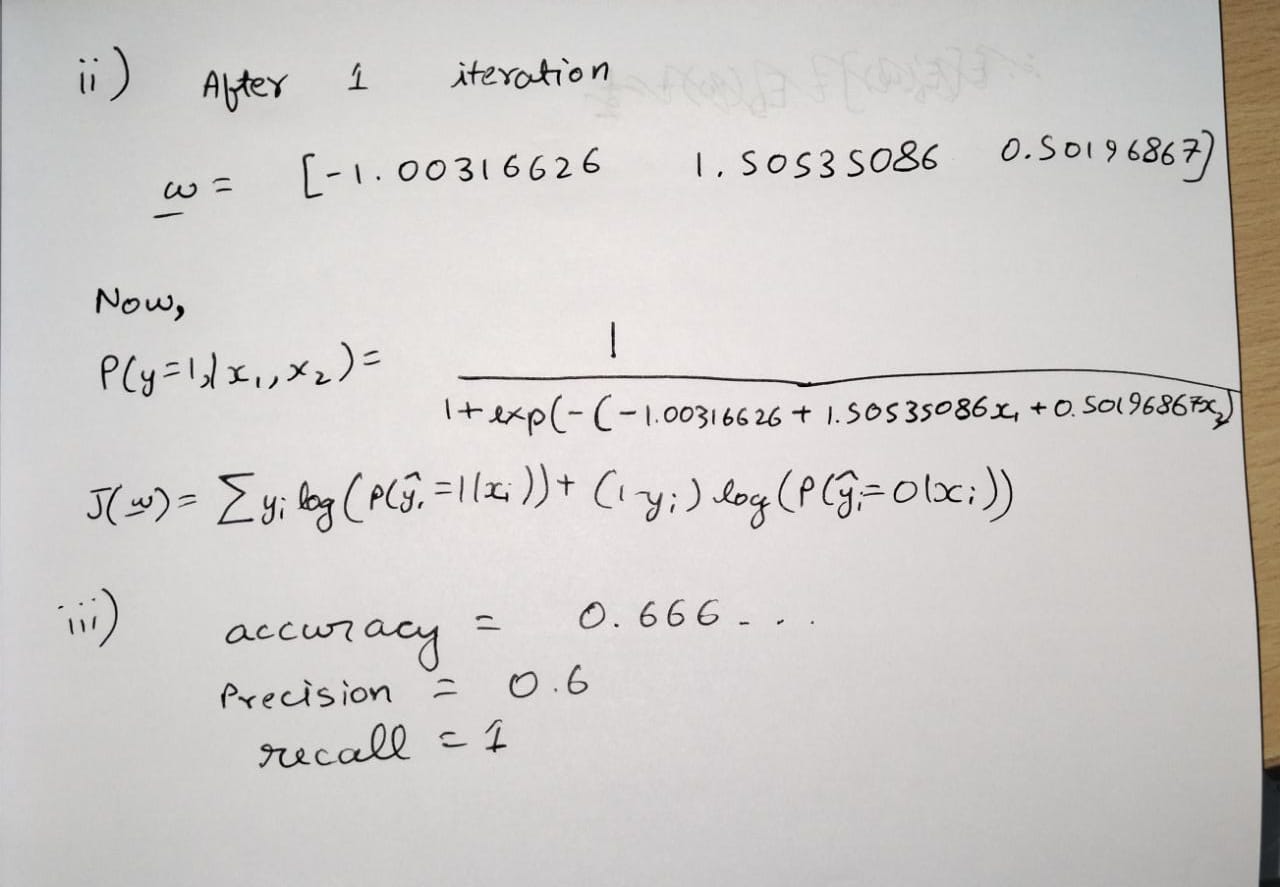 ii) After 1 iteration
w = [-1.00316626 1.50535086 0.50196867]
Now,
P(y=1|x₁,x₂)=
1
1+exp(-(-1.00316626 + 1.50535086x₁ + 0.50196867x₂)
J(w) = Σ yᵢ log(P(ŷᵢ=1|xᵢ)) + (1-yᵢ) log(P(ŷᵢ=0|xᵢ))
iii) accuracy = 0.666...
Precision = 0.6
recall = 1